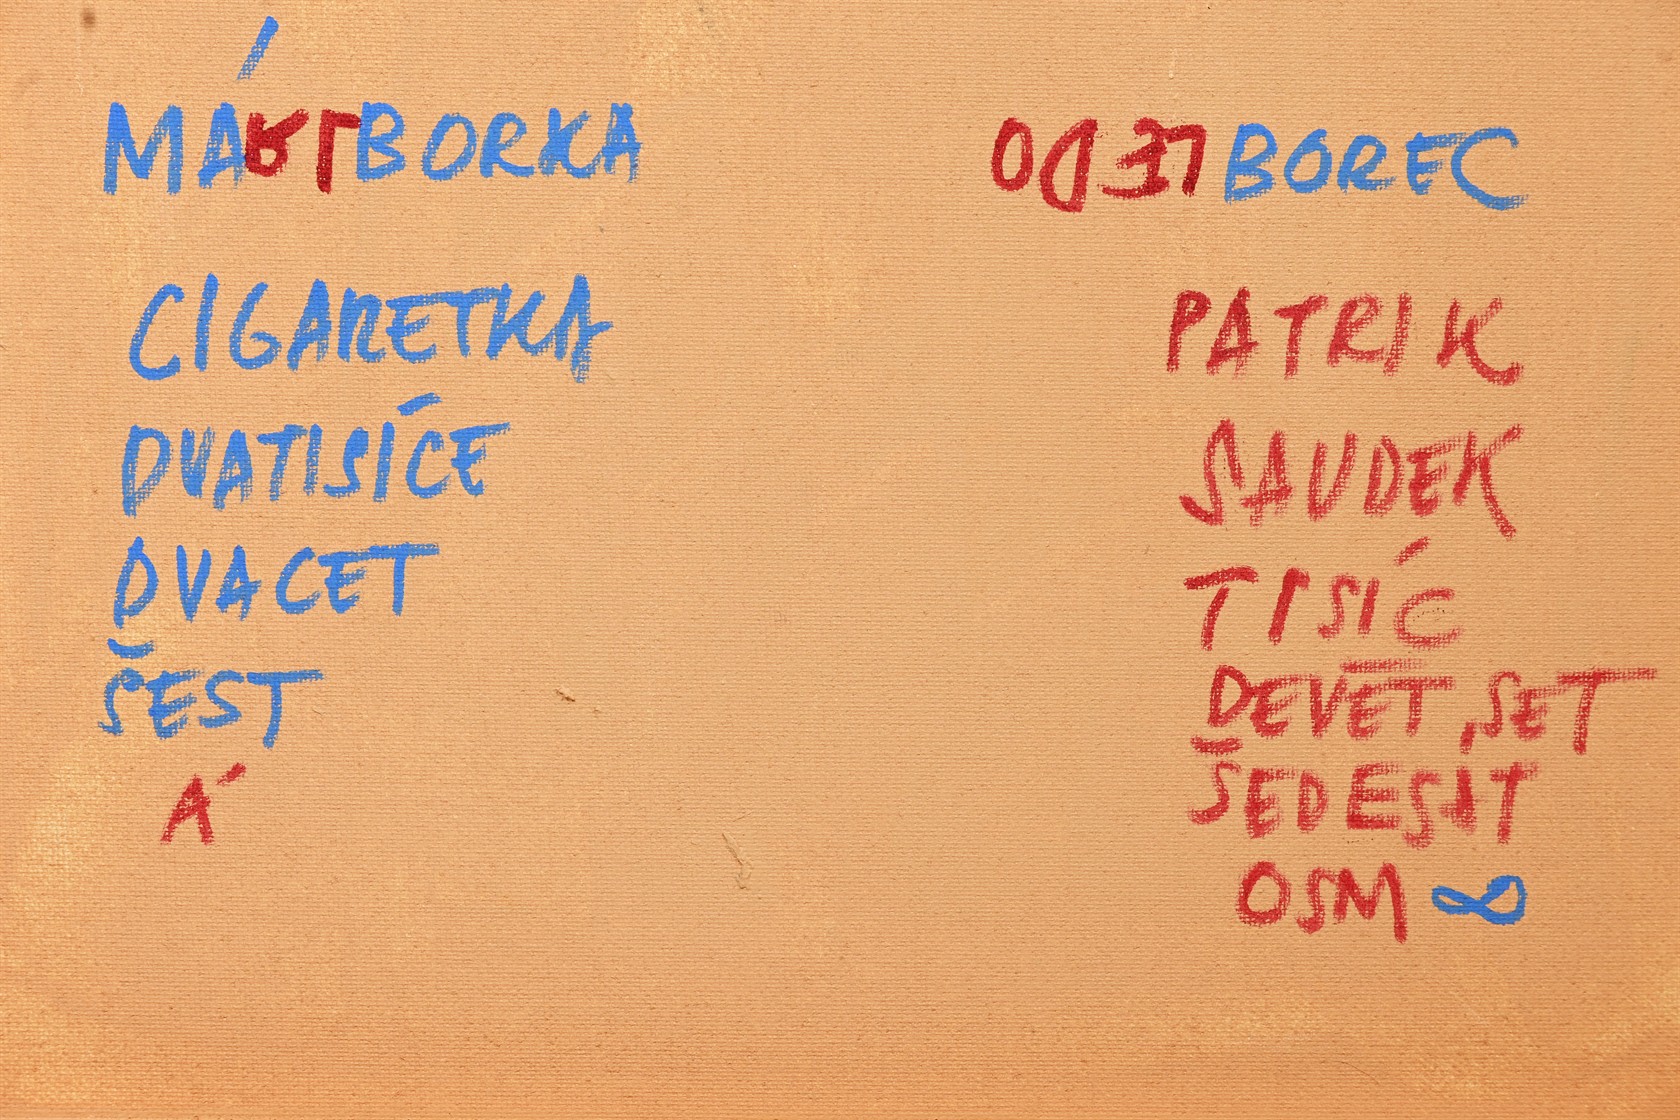 MÁRLBORKA
CIGARETKA
DVATISÍCE
DVACET
ŠEST
Á
ODJELBOREC
PATRIK
SAUDEK
TISÍC
DEVĚT,SET
ŠEDESÁT
OSM ∞